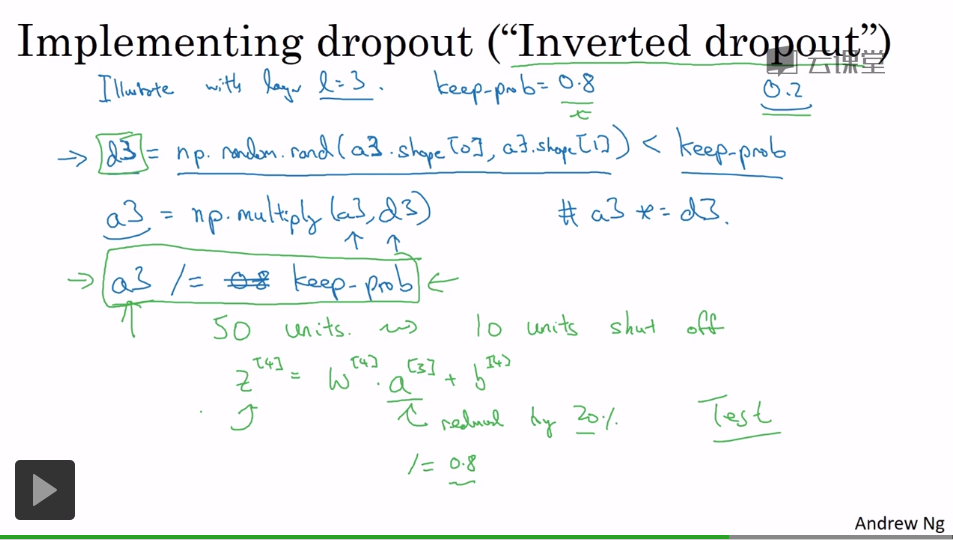 Implementing dropout (“Inverted dropout”)
云课堂
Illustrate with layer l=3. keep-prob = 0.8 0.2
x
→ d3 = np.random.rand(a3.shape[0], a3.shape[1]) < keep-prob
a3 = np.multiply(a3, d3) # a3 *= d3.
↑ ↑
→ a3 /= 0.8 keep-prob ←
↑ 50 units. ⇝ 10 units shut off
z^[4] = W^[4] · a^[3] + b^[4]
reduced by 20%. Test
/= 0.8
Andrew Ng